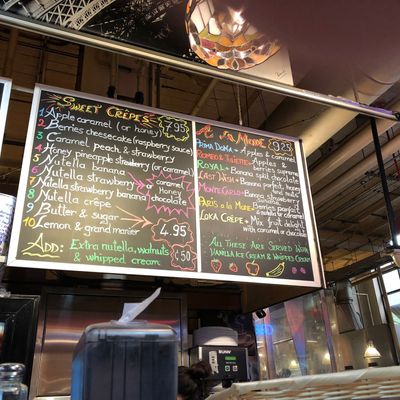 Sweet Crêpes 7.95
1 Apple caramel (or honey)
2 Berries cheesecake (raspberry sauce)
3 Caramel, peach, & strawberry
4 Honey pineapple strawberry (or caramel)
5 Nutella banana
6 Nutella strawberry
7 Nutella strawberry banana
8 Nutella crêpe
9 Butter & sugar
10 Lemon & grand marier
caramel
honey
chocolate
4.95
Add: Extra nutella, walnuts
& whipped cream .50
à la Mode 9.25
Prima Doma • Apples & caramel
Romeo & Juliette • Apples & berries supreme
Royal • Banana split, chocolate
Last Wish • Banana parfait, honey and nutella
Monte Carlo • Banana
Paris à la Mode • Berries parfait
nutella or caramel
Loka Crêpe • Mix fruit delight
with caramel or chocolate
All These Are Served With
Vanilla Ice Cream & Whipped Cream
BUNN